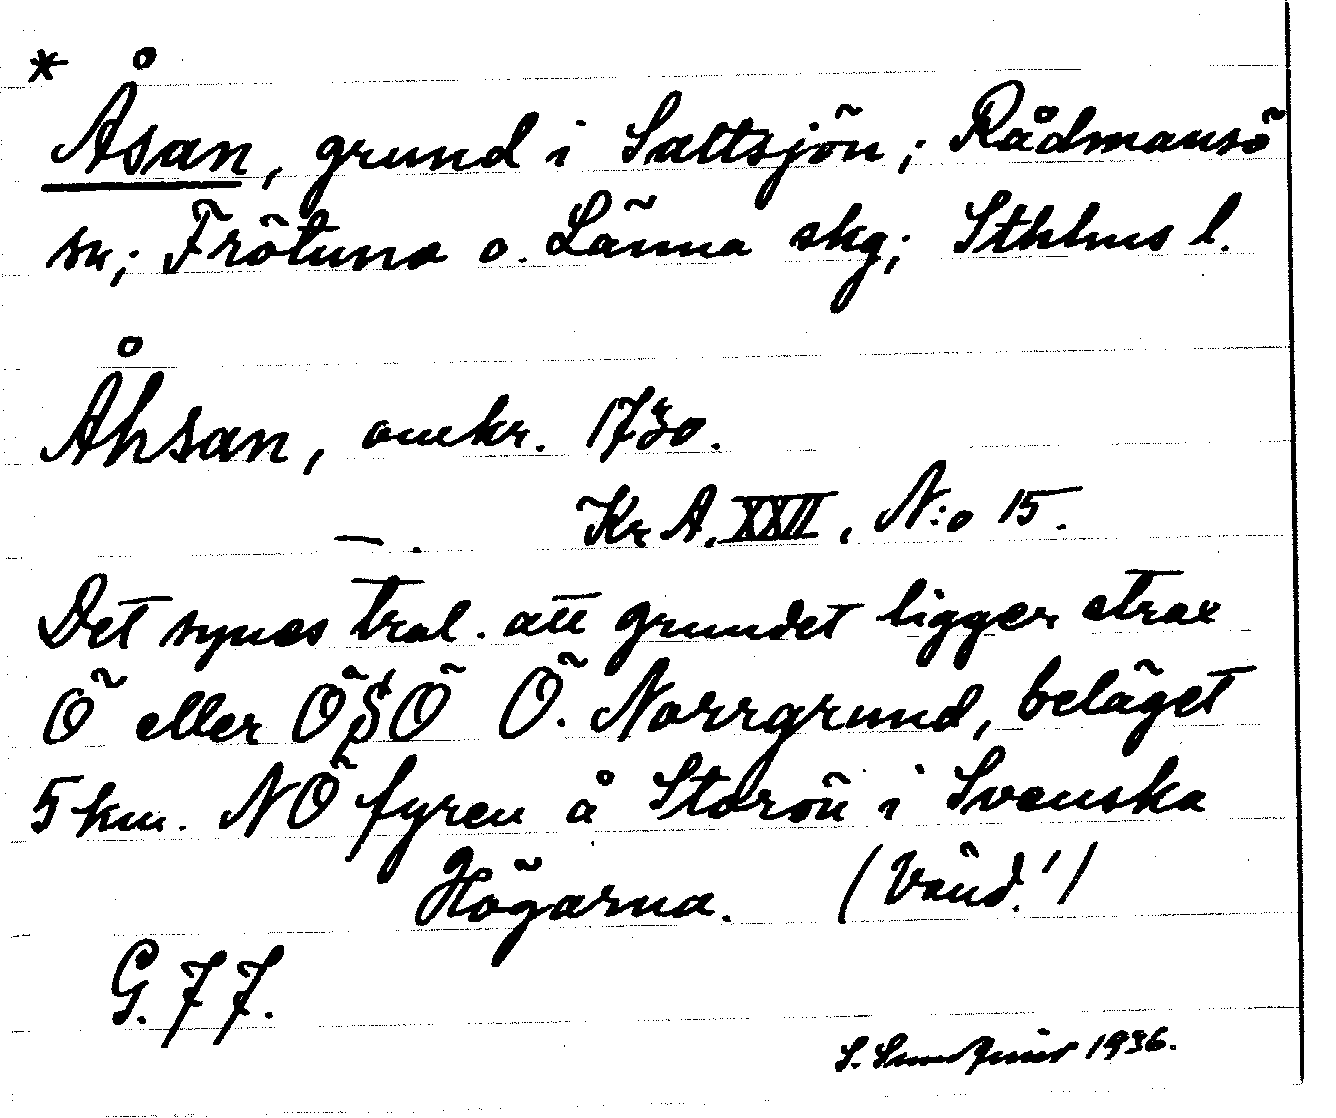 * Åsan, grund i Saltsjön; Rådmansö
sn; Frötuna o. Länna skg; Sthlms l.
Åhsan, omkr. 1730.
Kr. A. XXII, N:o 15.
Det synes trol. att grundet ligger strax
Ö eller ÖSÖ Ö. Norrgrund, beläget
5 km. NÖ fyren å Storön i Svenska
Högarna. (Vänd!)
G. 77.
S. 1936.